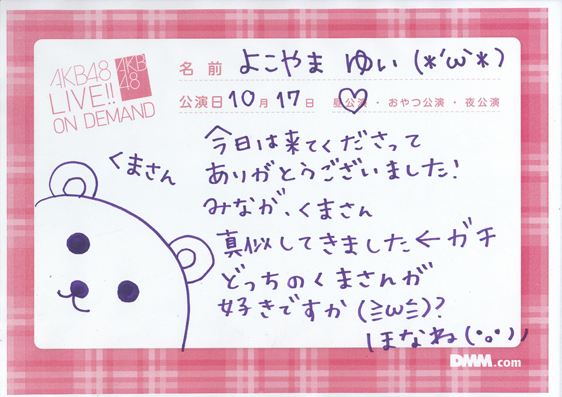 AKB48
LIVE!!
ON DEMAND
AKB
48
名前 よこやま ゆい (*'ω`*)
公演日 10月 17日 昼公演・おやつ公演・夜公演
くまさん
今日は来てくださって
ありがとうございました!
みなが、くまさん
真似してきました←ガチ
どっちのくまさんが
好きですか(≧ω≦)?
ほなね(°o°))
DMM.com